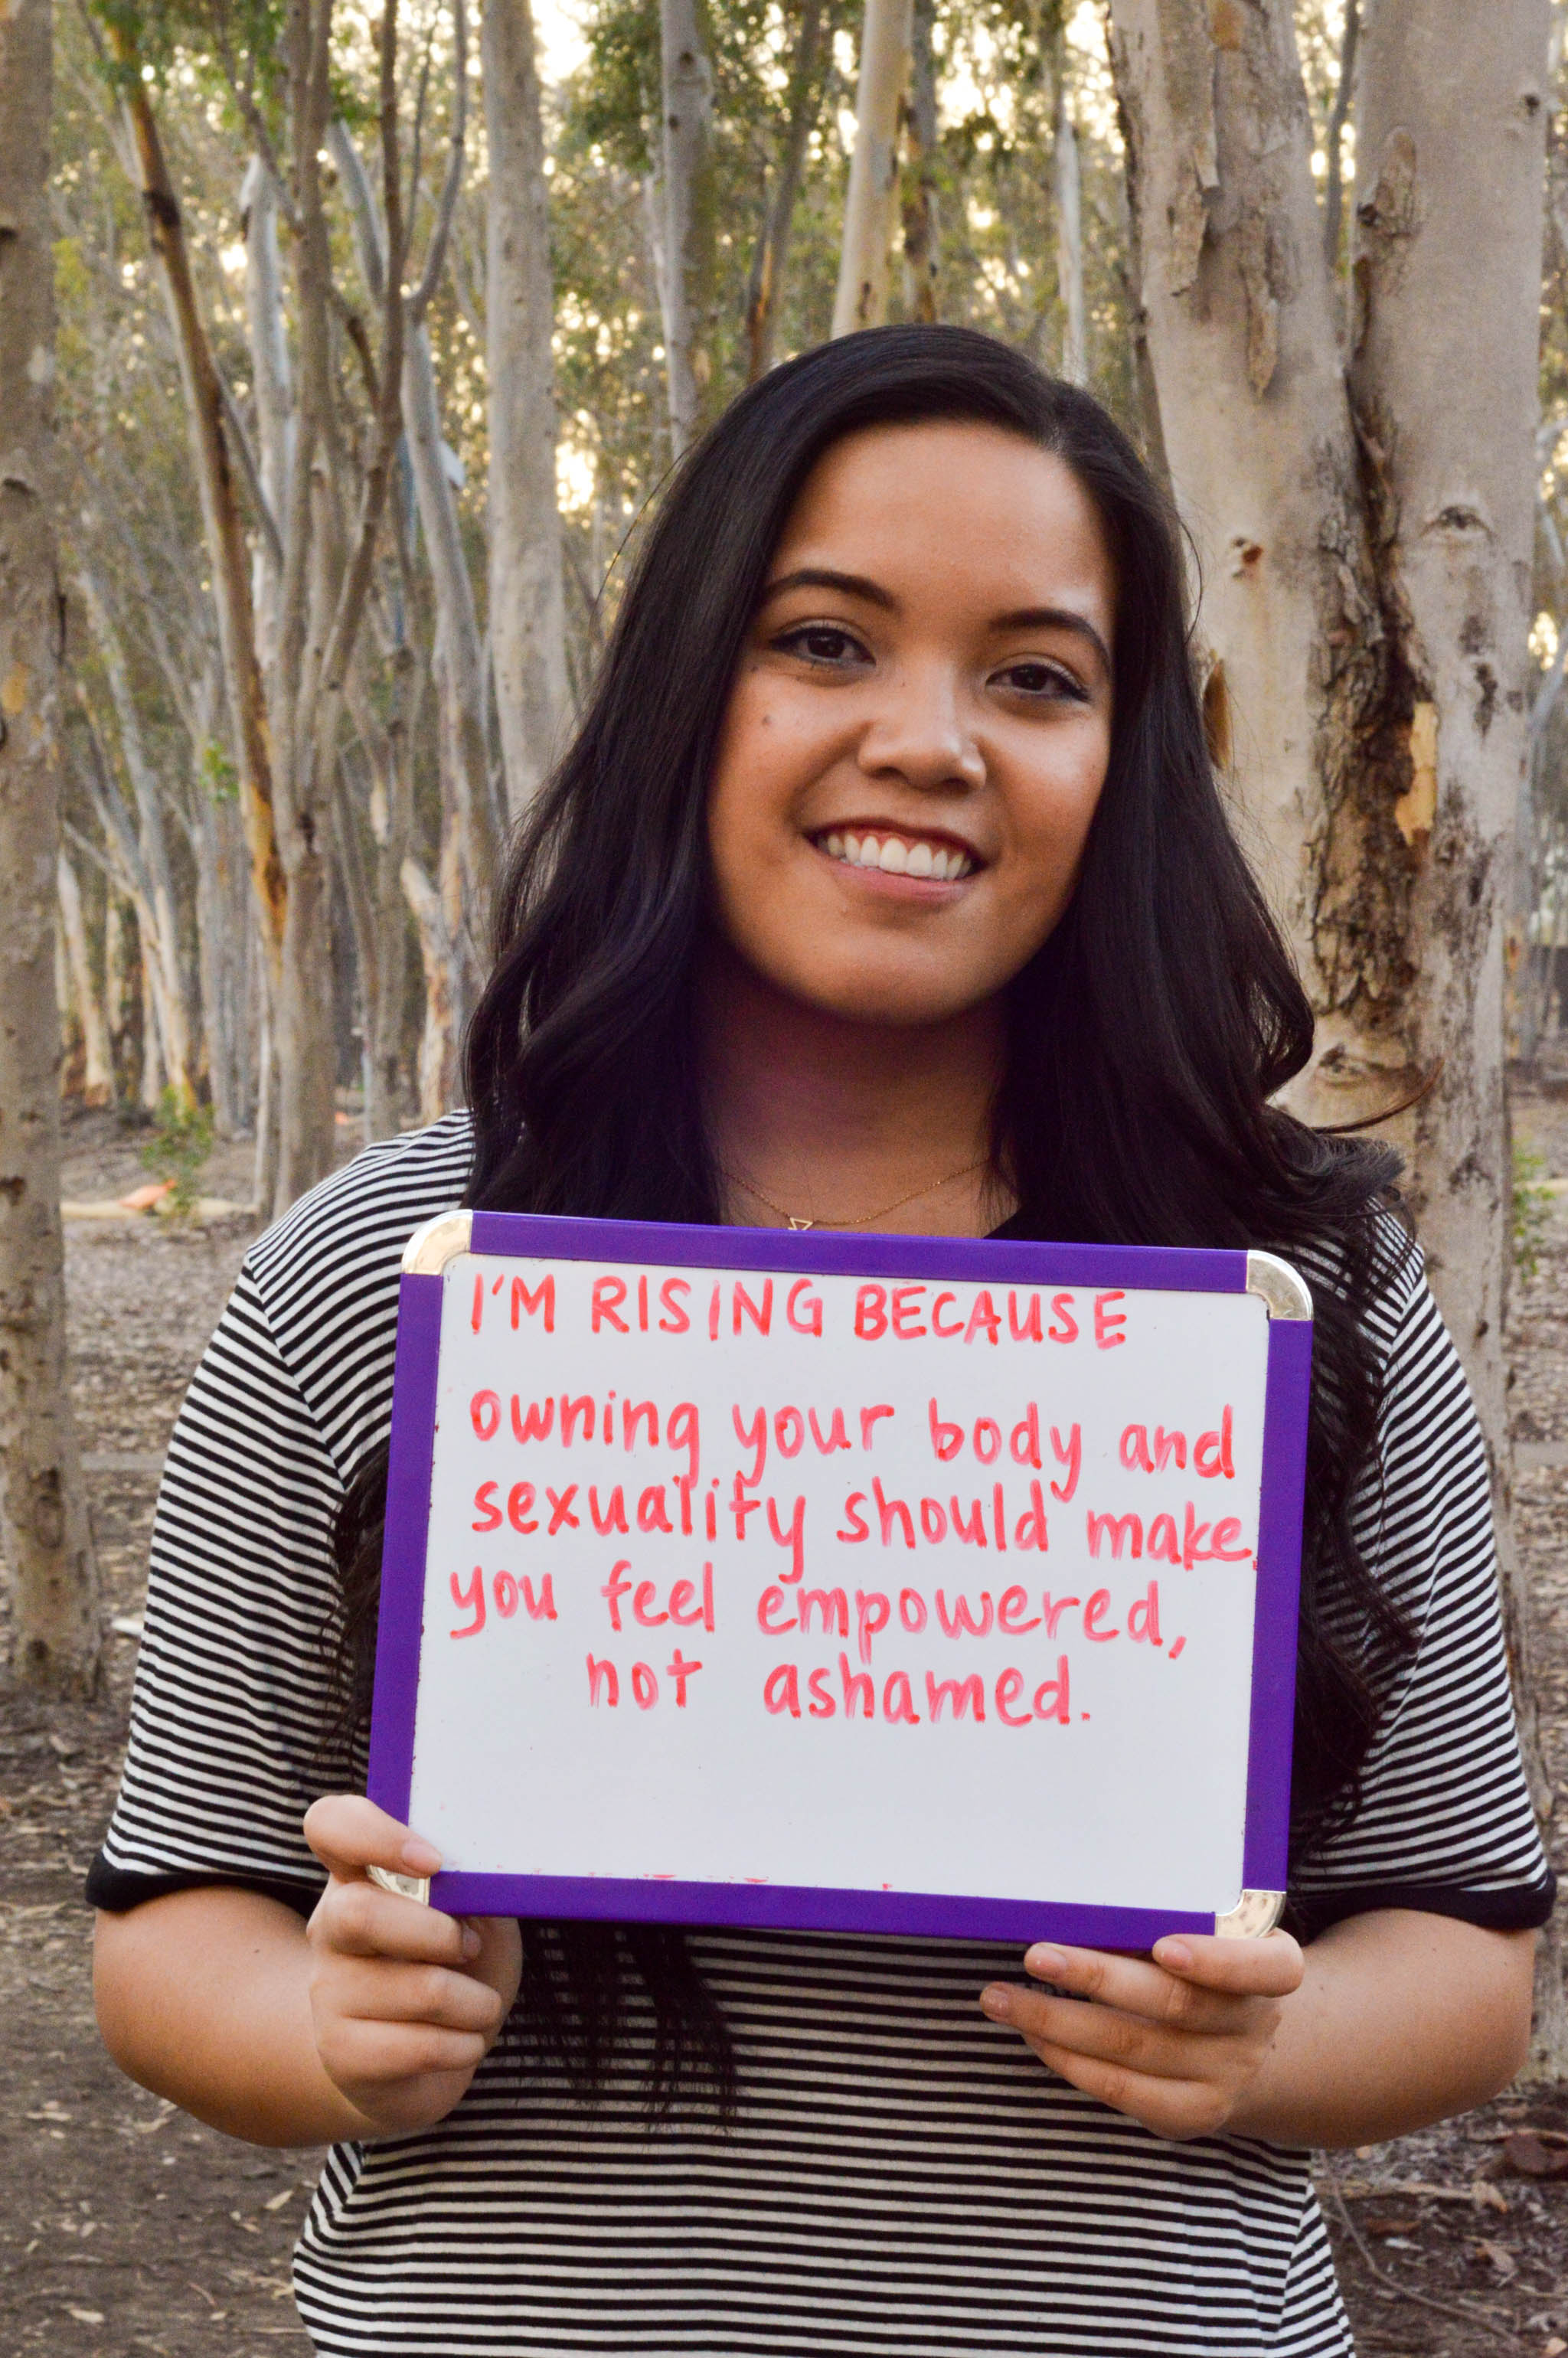 I'M RISING BECAUSE
owning your body and
sexuality should make
you feel empowered,
not ashamed.